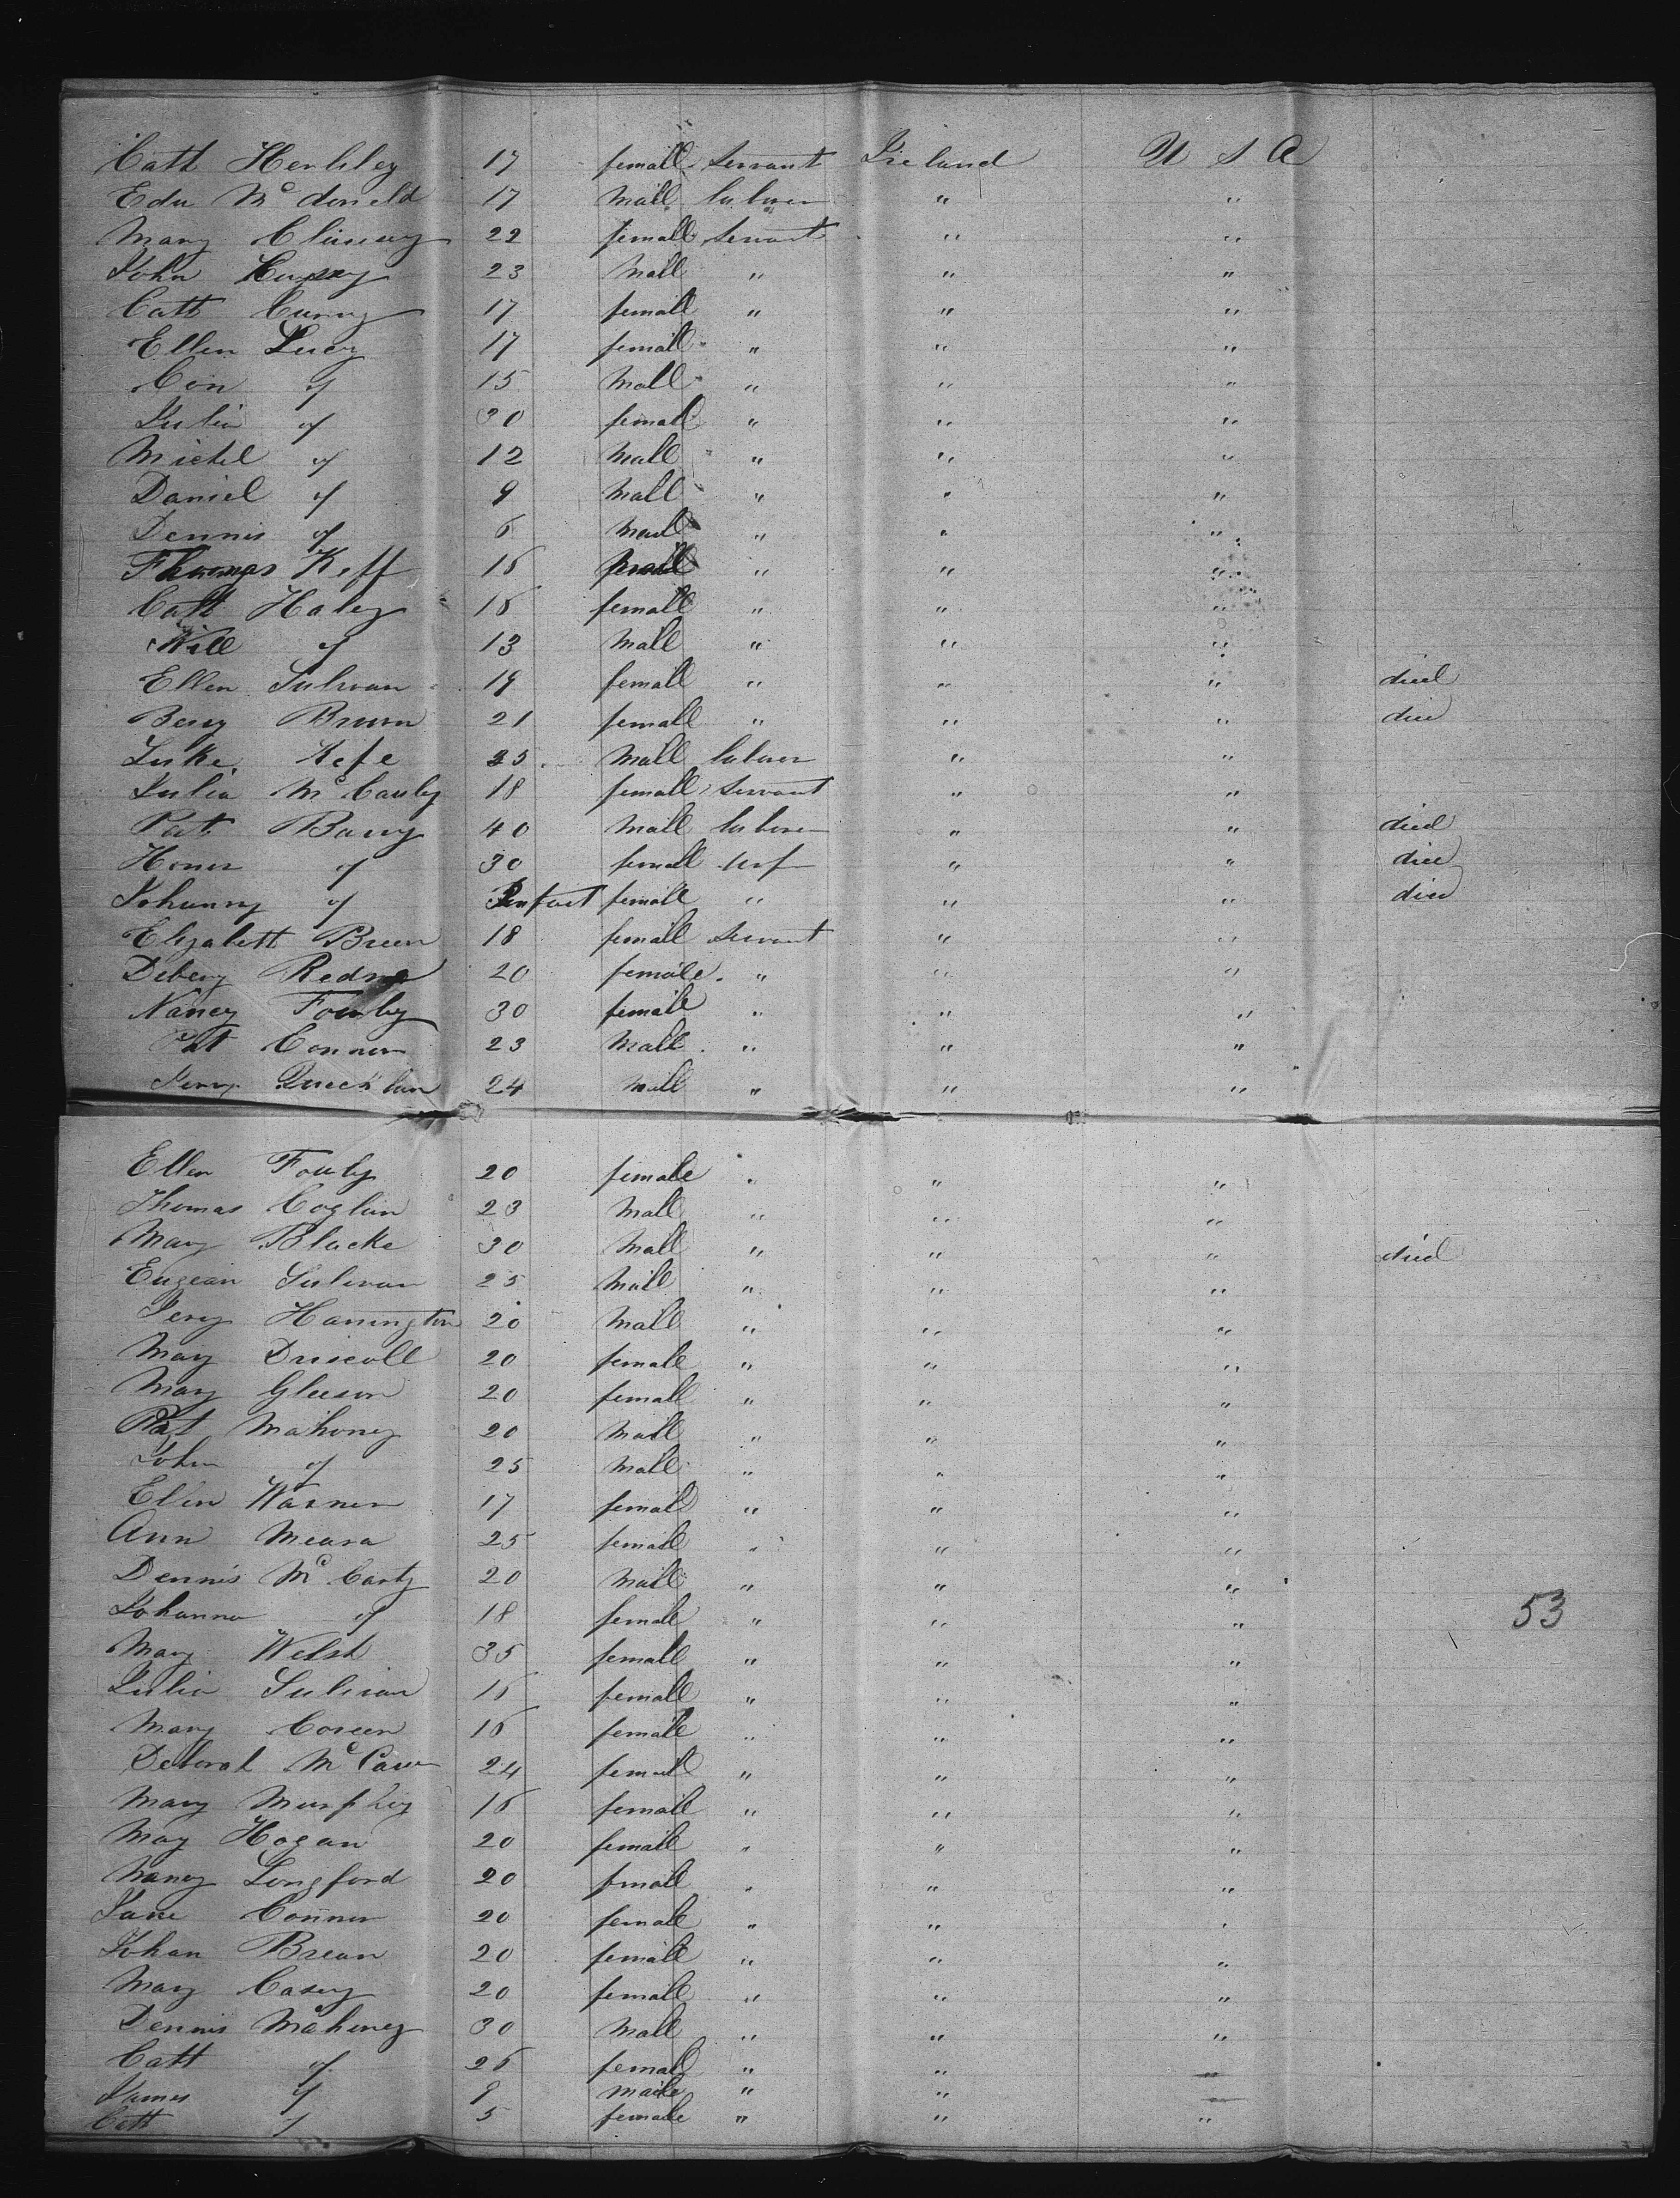 Catt Herlihey 17 femall Servant Ireland U S A
Edw Mc doneld 17 Mall laburer " "
Mary Clancey 22 femall Servant " "
John 23 Mall " " "
Catt Curry 17 femall " " "
Ellen Lucy 17 femall " " "
Con of 15 Mall " " "
Julia of 30 femall " " "
Michel of 12 Mall " " "
Daniel of 9 Mall " " "
Dennis of 6 Mall " " "
Thomas Keff 16 Mall " " "
Catt Haley 16 femall " " "
Will of 13 Mall " " "
Ellen Sulivan 19 femall " " " died
Brown 21 femall " " " died
Luke Kefe 25 Mall laburer " "
Julia Mc Cauly 18 femall Servant " "
Pat Barry 40 Mall laburer " " died
Honer of 30 femall wif " " died
Johanny of Infant female " " " died
Elizabett Breen 18 femall Servant " "
Redmo 20 female " " "
Nancy Fowley 30 female " " "
Pat Conner 23 Mall " " "
Jerry Quecklan 24 Mall " " "
Ellen Fouly 20 female " " "
Thomas Coglan 23 Mall " " "
Mary Blacke 30 Mall " " " died
Eugean Sulivan 25 Mall " " "
Jery Harrington 20 Mall " " "
Mary Driscoll 20 female " " "
Mary Gleeson 20 femall " " "
Pat Mahoney 20 Mall " " "
John of 25 Mall " " "
Ellen Warner 17 femall " " "
Ann Meara 25 femall " " "
Dennis Mc Carty 20 Mall " " "
Johanna of 18 female " " " 53
Mary Welsh 35 femall " " "
Julia Sulivan 16 femall " " "
Mary Coreen 16 female " " "
Deborah Mc 24 femall " " "
Mary Murphey 16 femall " " "
Mary Hogan 20 female " " "
Nancy Longford 20 fmall " " "
Jane Conner 20 female " " "
Johan Brean 20 female " " "
Mary Casey 20 female " " "
Dennis Mahoney 30 Mall " " "
Catt of 26 femall " " "
James of 9 maile " " "
Catt of 5 female " " "